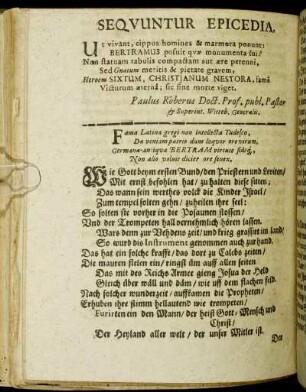 SEQVUNTUR EPICEDIA.
Ut vivant, cippos homines & marmora ponunt:
BERTRAMUS posuit qvæ monumenta sui?
Non statuam tabulis compactam aut ære perenni,
Sed Gnatum meritis & pietate gravem,
Heroem SIXTUM, CHRISTJANUM NESTORA, famâ
Victurum æternâ; sic sine morte viget.
Paulus Röberus Doct. Prof. publ. Pastor
& Superint. Witteb. Generalis.
Fama Latina gregi non intellecta Tudesco,
Da veniam patrio dum loquor ore virum,
Germane antiqua BERTRAM virtute
Non alio voluit dicier ore senex.
Wie Gott beym ersten Bund/ den Priestern und Leviten/
Mit ernst befohlen hat/ zu halten diese sitten;
Das wann sein werthes volck die Kinder Israel/
Zum tempel solten gehn/ zuheiln ihre seel:
So solten sie vorher in die Posaunen stossen/
Und der Trompeten hall vornehmlich hören lassen.
Wars denn zur Vehdens zeit/ und krieg grassirt im land/
So wurd diß Instrument genommen auch zur hand.
Das hat ein solche krafft/ das dort zu Calebs zeiten/
Die mauren fielen ein/ ringst üm auff allen seiten
Das mit des Reichs Armee gieng Josua der Held
Gleich über wäll und däm/ wie uff dem flachen feld.
Nach solcher wunder zeit/ aufftkamen die Propheten/
Erhuben ihre stimm hellautend wie trompeten/
Fürirten ein den Mann/ der heist Gott/ Mensch und
Christ/
Der Heyland aller welt/ der unser Mitler ist.
Der